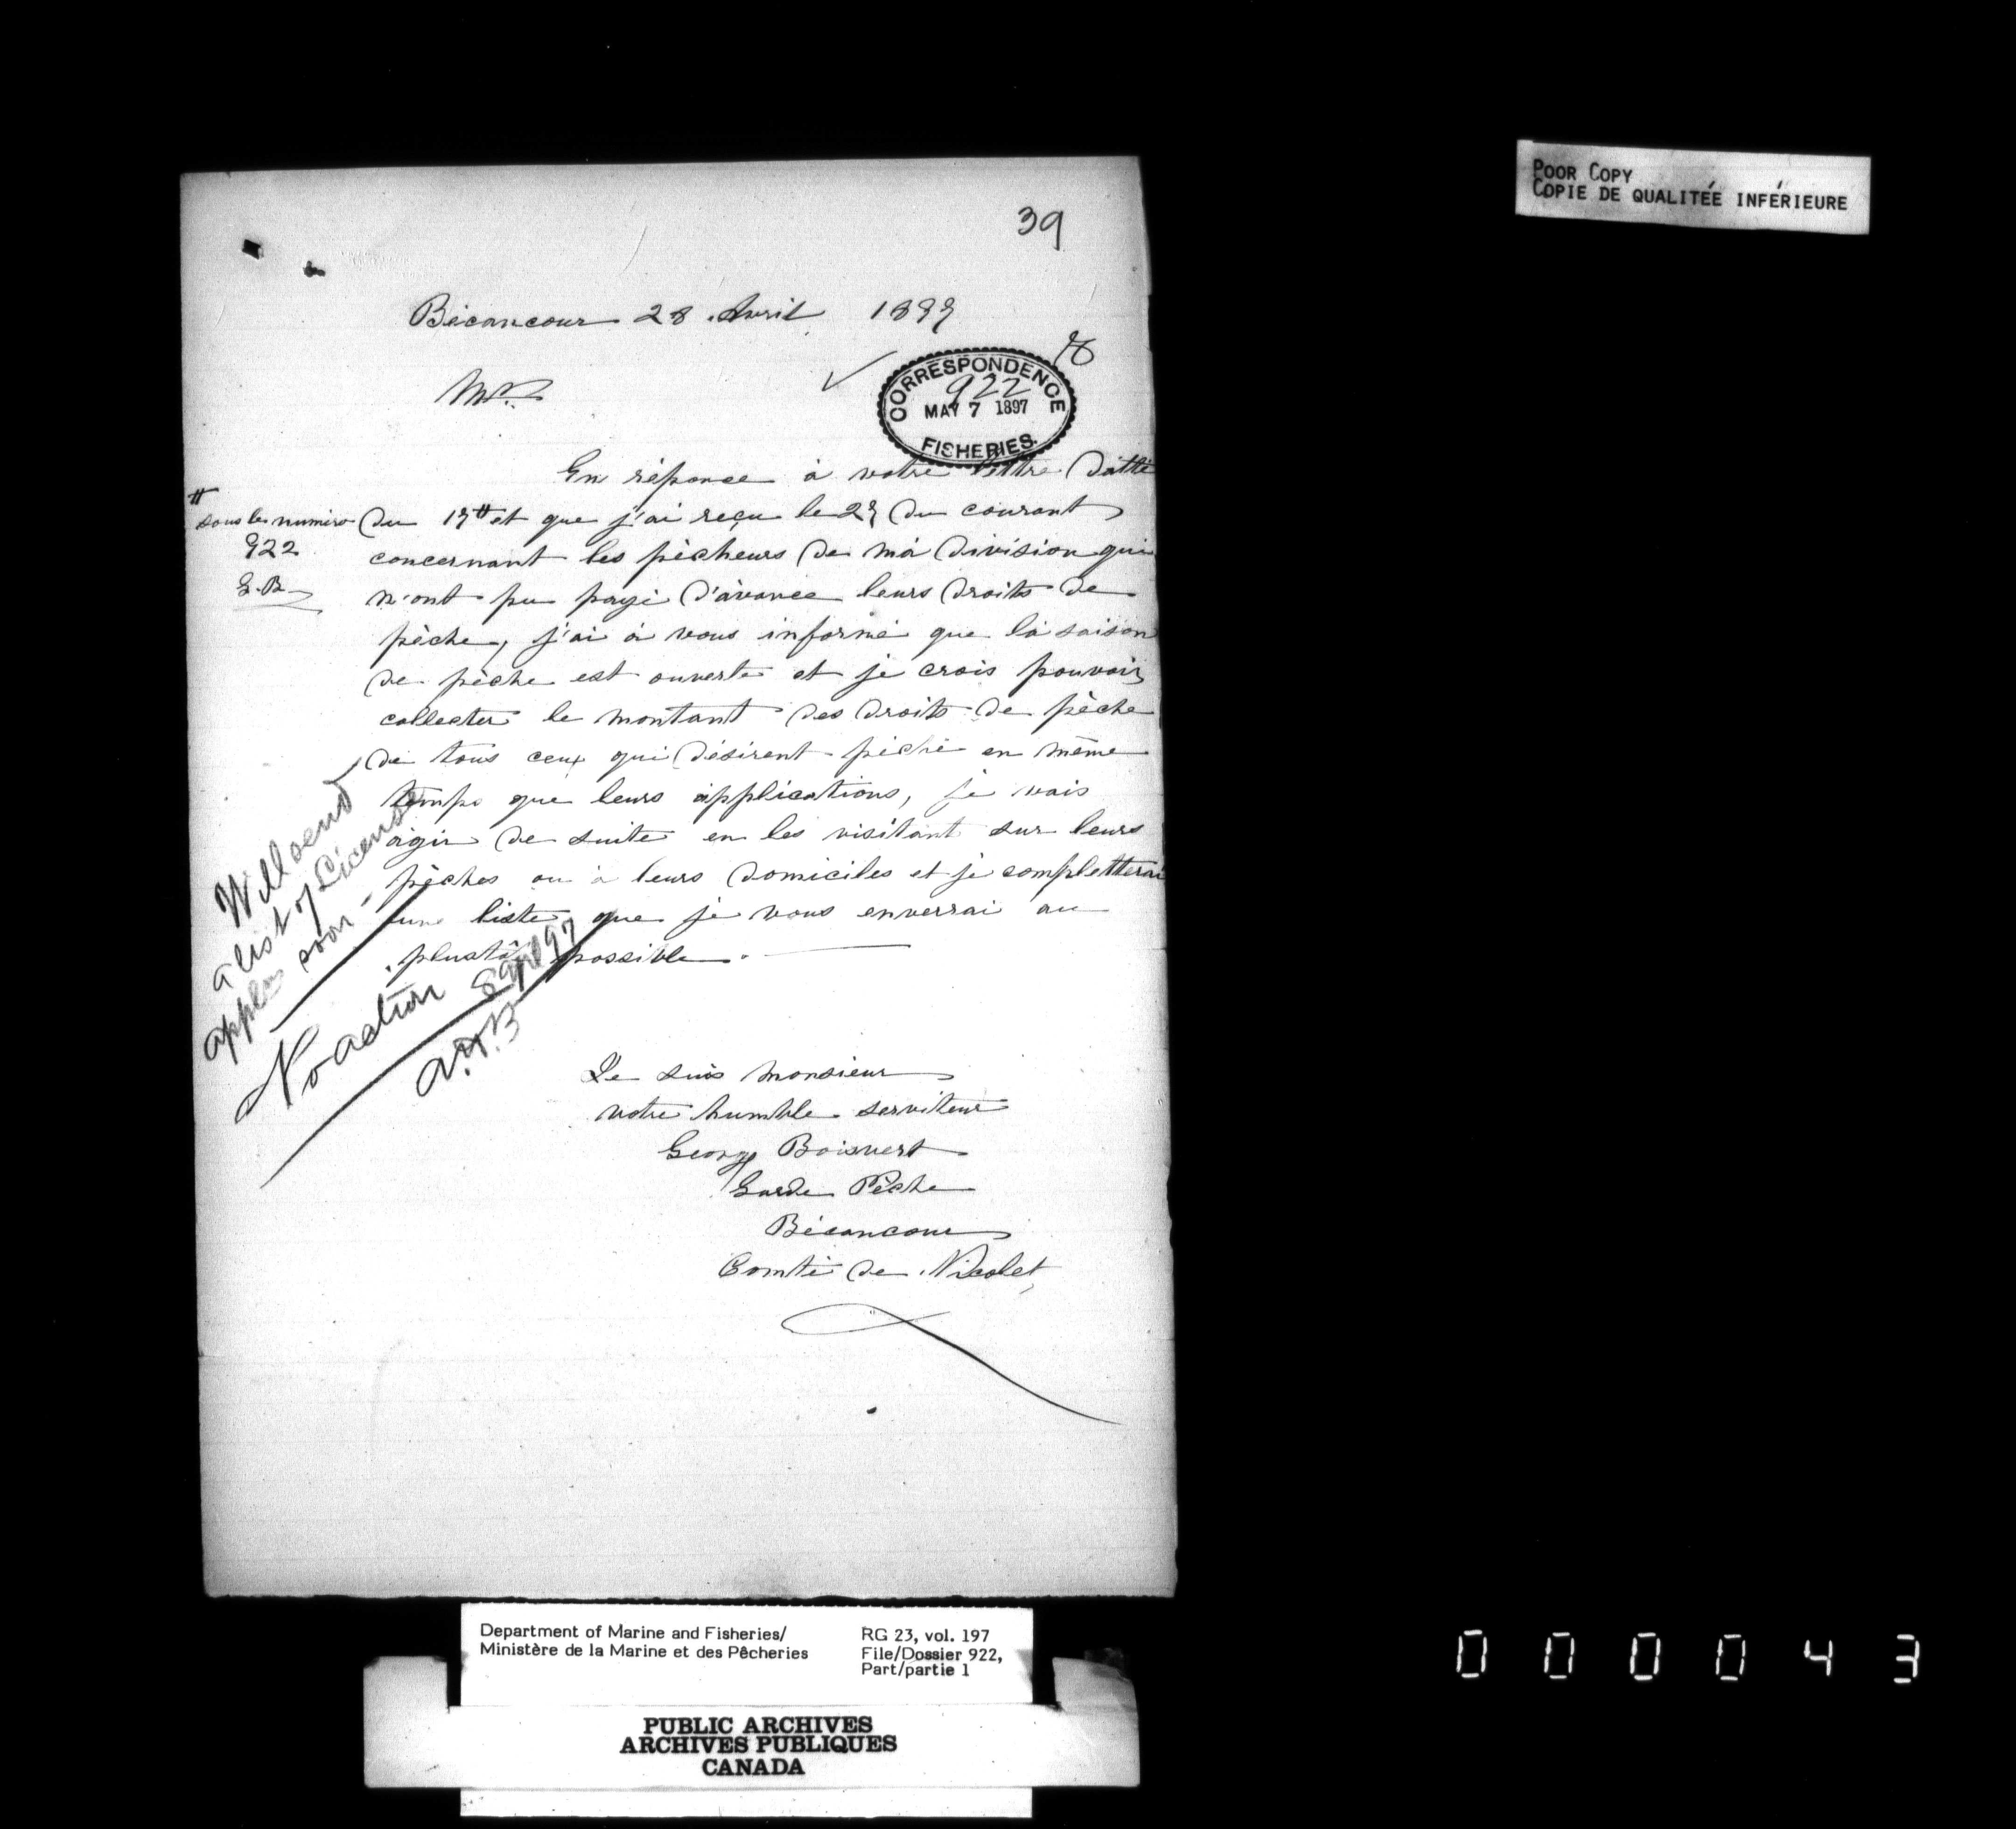 POOR COPY
COPIE DE QUALITÉE INFÉRIEURE
39
Bécancour 28 Avril 1897
Mr.
CORRESPONDENCE
922
MAY 7 1897
FISHERIES.
En réponce à votre lettre datté
# sous le numero 922 G.B.
du 17 # et que j'ai reçu le 27 du courant
concernant les pêcheurs de ma division qui
n'ont pu payé d'avance leurs droits de
pêche, j'ai à vous informé que la saison
de pêche est ouverte et je crois pouvoir
collecter le montant des droits de pêche
de tous ceux qui désirent pêché en même
temps que leurs applications, je vais
agir de suite en les visitant sur leurs
pêches ou à leurs domiciles et je completterai
une liste que je vous enverrai au
plustôt possible.
Will send
a list of License
applns soon -
No action
97
Je suis monsieur
votre humble serviteur
George Boisvert
Garde Pêche
Bécancour
Comté de Nicolet
Department of Marine and Fisheries/
Ministère de la Marine et des Pêcheries
RG 23, vol. 197
File/Dossier 922,
Part/partie 1
PUBLIC ARCHIVES
ARCHIVES PUBLIQUES
CANADA
000043